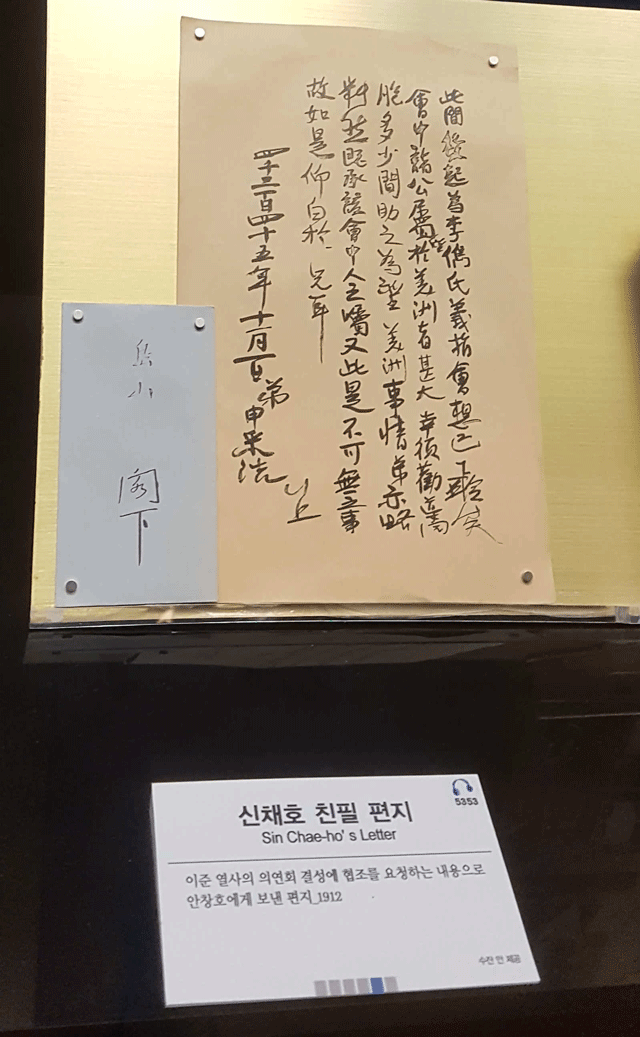 此間發起為李儁氏義捐會想已下聆矣
會中諸公屬望於美洲者甚大幸須勸
胞多少間助之為望 美洲事情第示略
料然既承該會中人之囑又此是不可無之事
故如是仰白於 兄耳
四千二百四十五年 十一月 弟 申采浩
以上
島山 閣下
5353
신채호 친필 편지
Sin Chae-ho's Letter
이준 열사의 의연회 결성에 협조를 요청하는 내용으로
안창호에게 보낸 편지_1912
수잔 안 제공